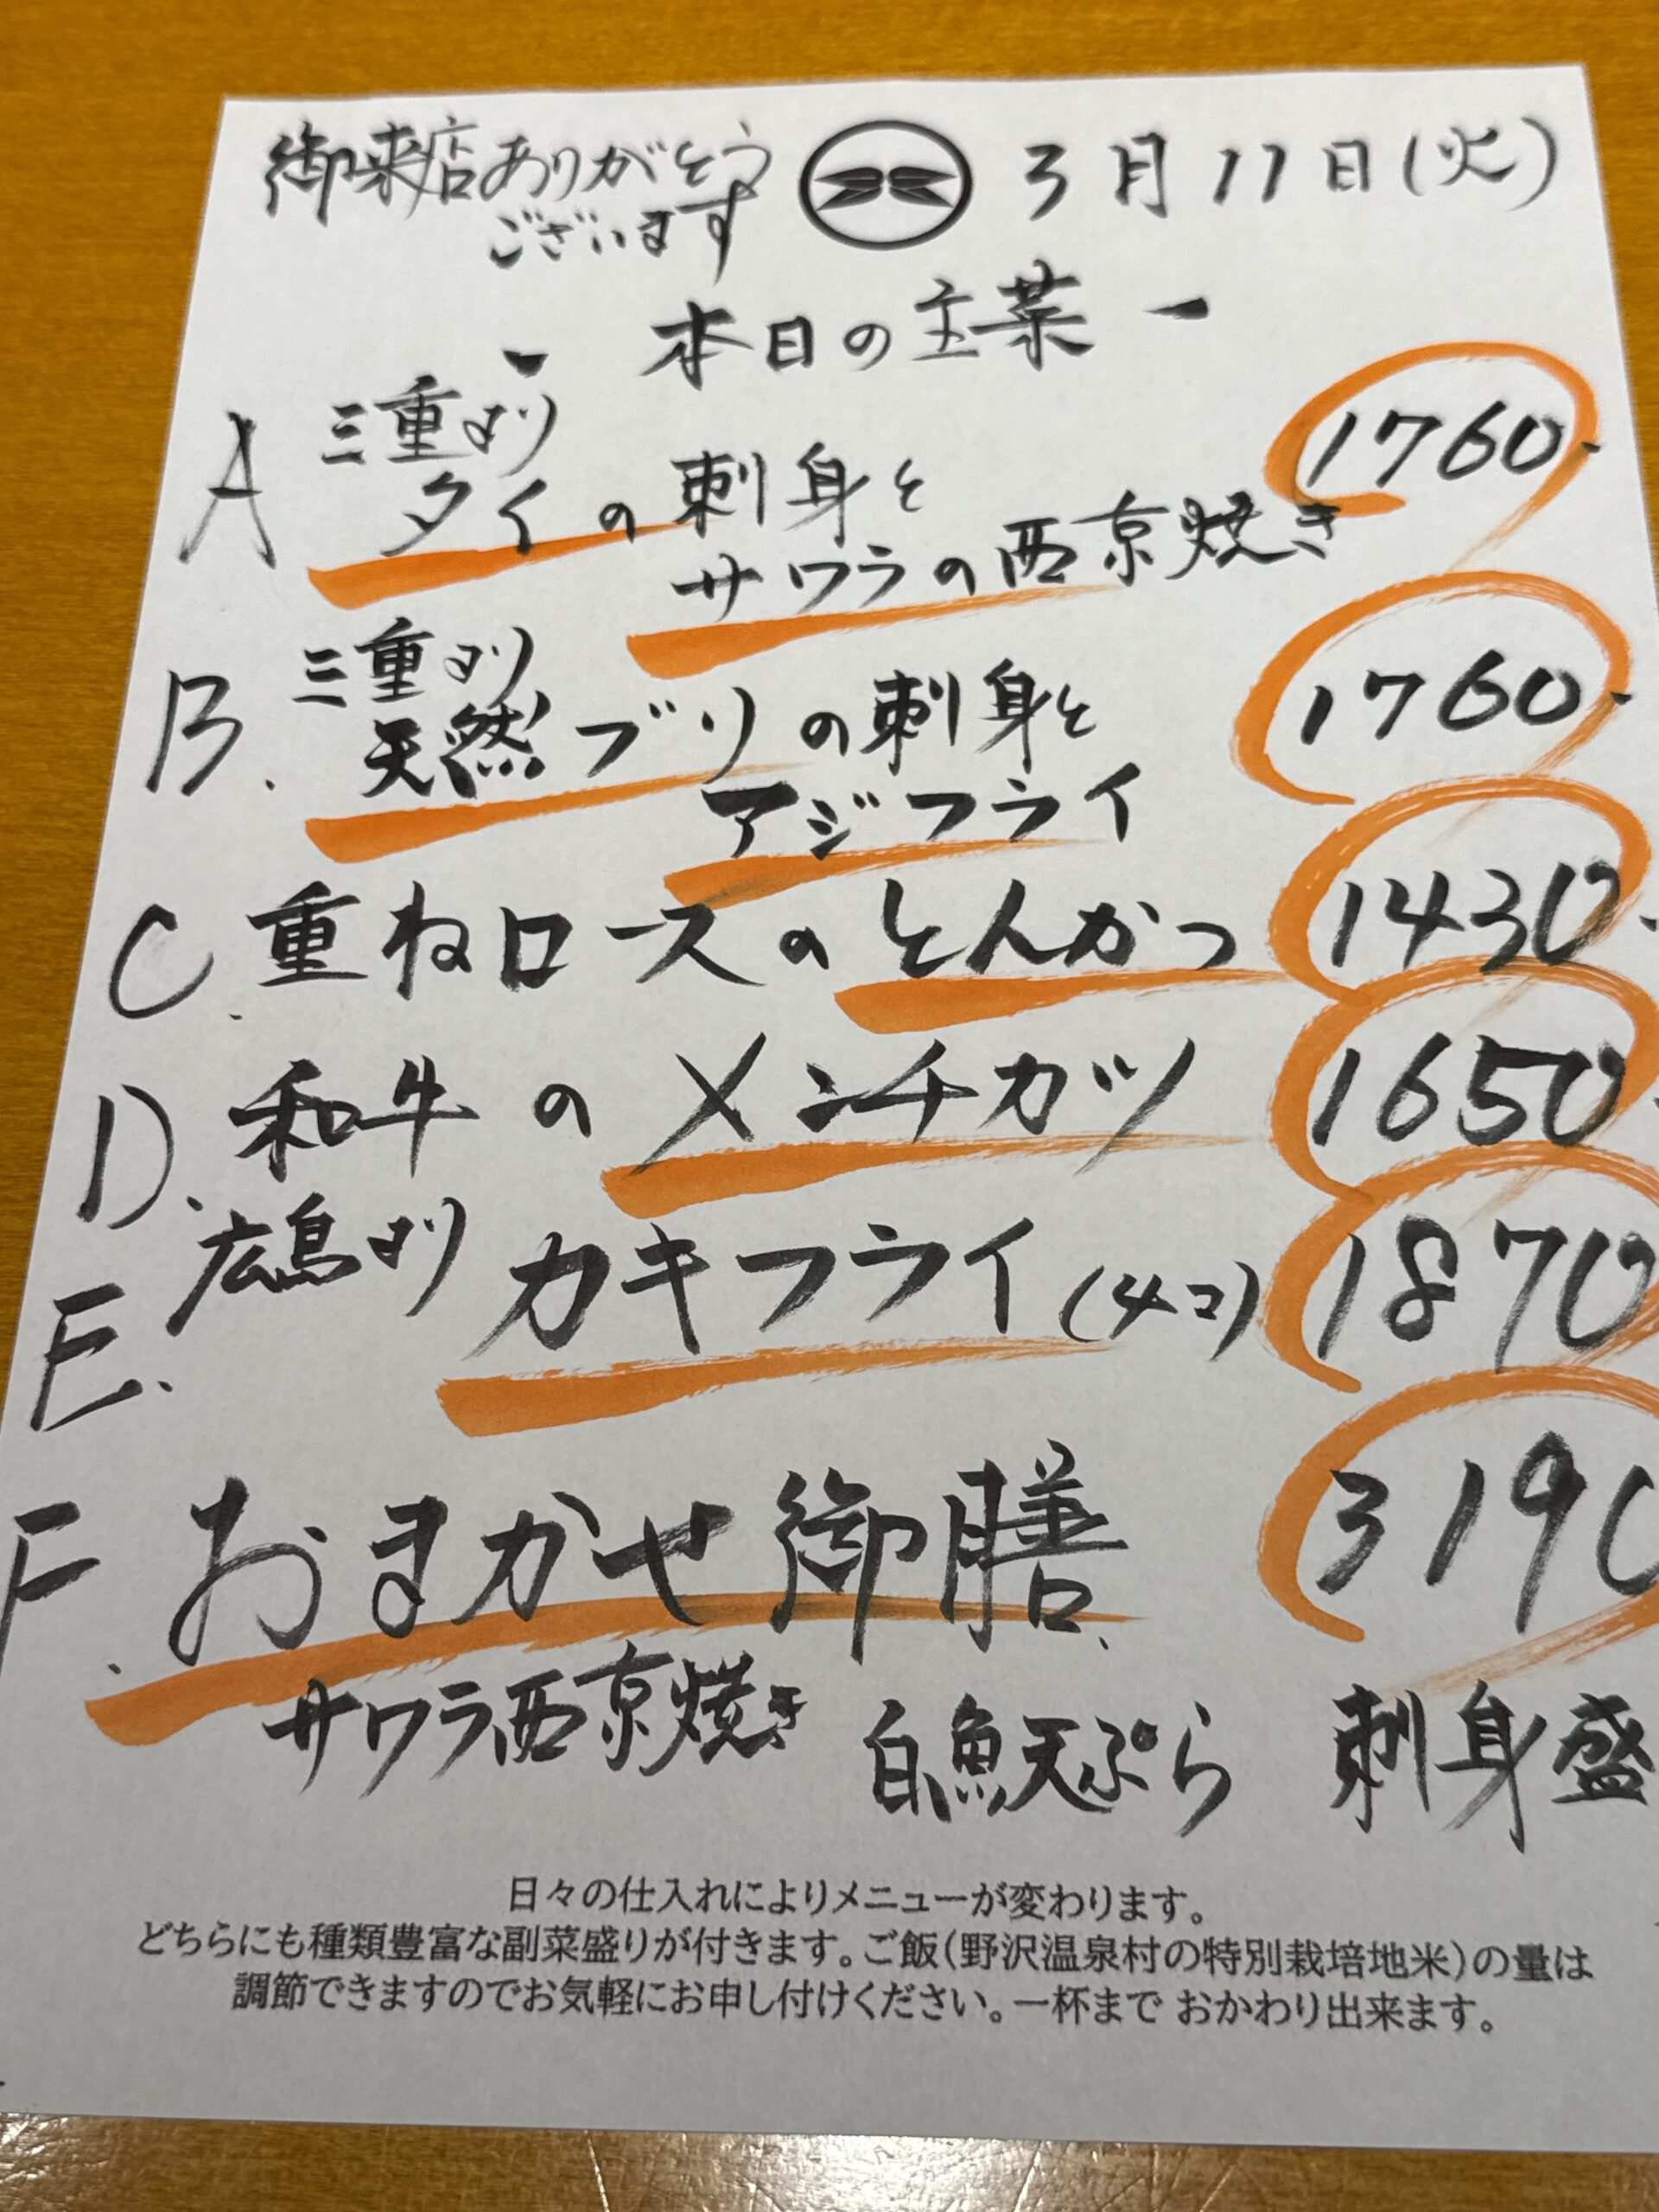 御来店ありがとう
ございます
3月11日(火)
- 本日の主菜 -
A 三重より
タイの刺身と
サワラの西京焼き 1760.
B. 三重より
天然ブリの刺身と
アジフライ 1760.
C. 重ねロースのとんかつ 1430.
D. 和牛のメンチカツ 1650.
E. 広島より カキフライ(4コ) 1870
F. おまかせ御膳 3190
サワラ西京焼き 白魚天ぷら 刺身盛
日々の仕入れによりメニューが変わります。
どちらにも種類豊富な副菜盛りが付きます。ご飯(野沢温泉村の特別栽培地米)の量は
調節できますのでお気軽にお申し付けください。一杯まで おかわり出来ます。